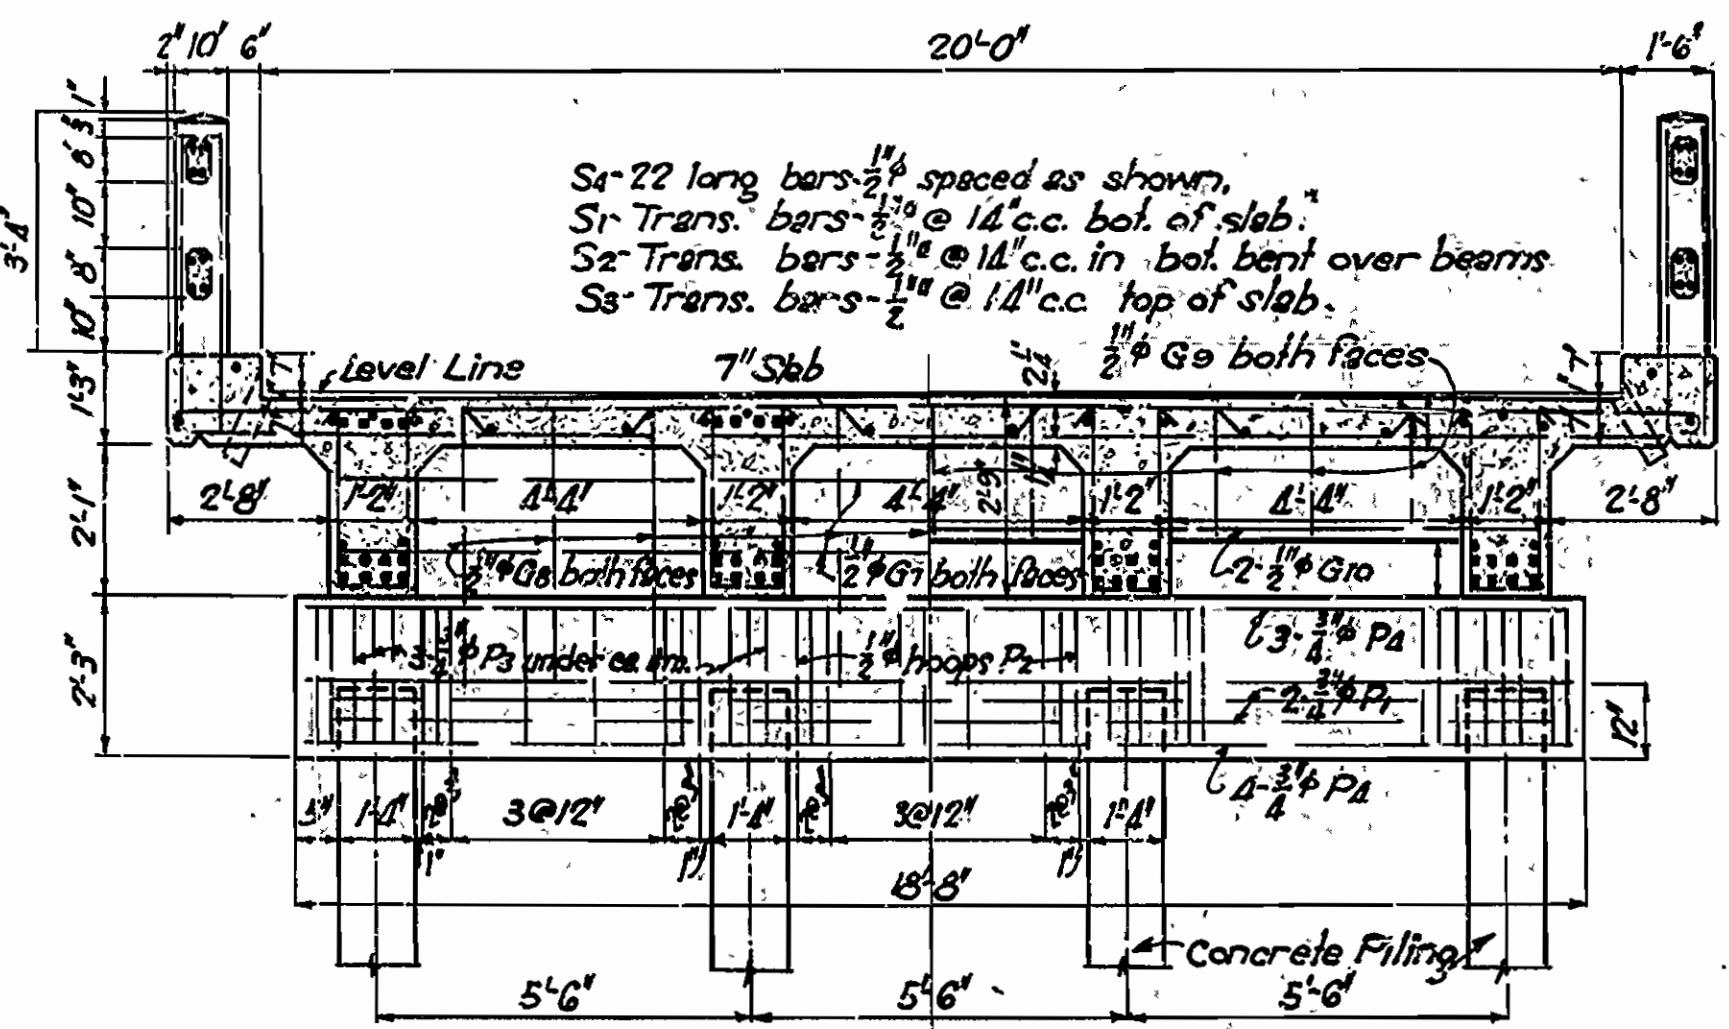 2" 10" 6" 20'-0" 1'-6"
1"
3"
8"
10"
8"
10"
3'-4"
S4-22 long bars-1/2"ϕ spaced as shown.
S1- Trans. bars-1/2"□ @ 14"c.c. bot. of slab.
S2- Trans. bars-1/2"□ @ 14"c.c. in bot. bent over beams
S3- Trans. bars-1/2"□ @ 14"c.c. top of slab.
Level Line 7" Slab 2 1/4" 1/2"ϕ G9 both faces
7" 1" 7"
1'-3" 7"
2'-8" 1'-2" 4'-4" 1'-2" 4'-4" 2'-9" 1'-2" 4'-4" 1'-2" 2'-8"
2'-1"
1/2"ϕ G8 both faces 1/2"ϕ G7 both faces 2-1/2"ϕ G10
3-3/4"ϕ P4
3-3/4"ϕ P3 under ea. 1/2"ϕ hoops P2
2'-3"
2-3/4"ϕ P1
12"
4-3/4"ϕ P4
5" 1'-4" 3@12" 1'-4" 3@12" 1'-4"
1" 1" 1"
18'-8"
Concrete Piling
5'-6" 5'-6" 5'-6"